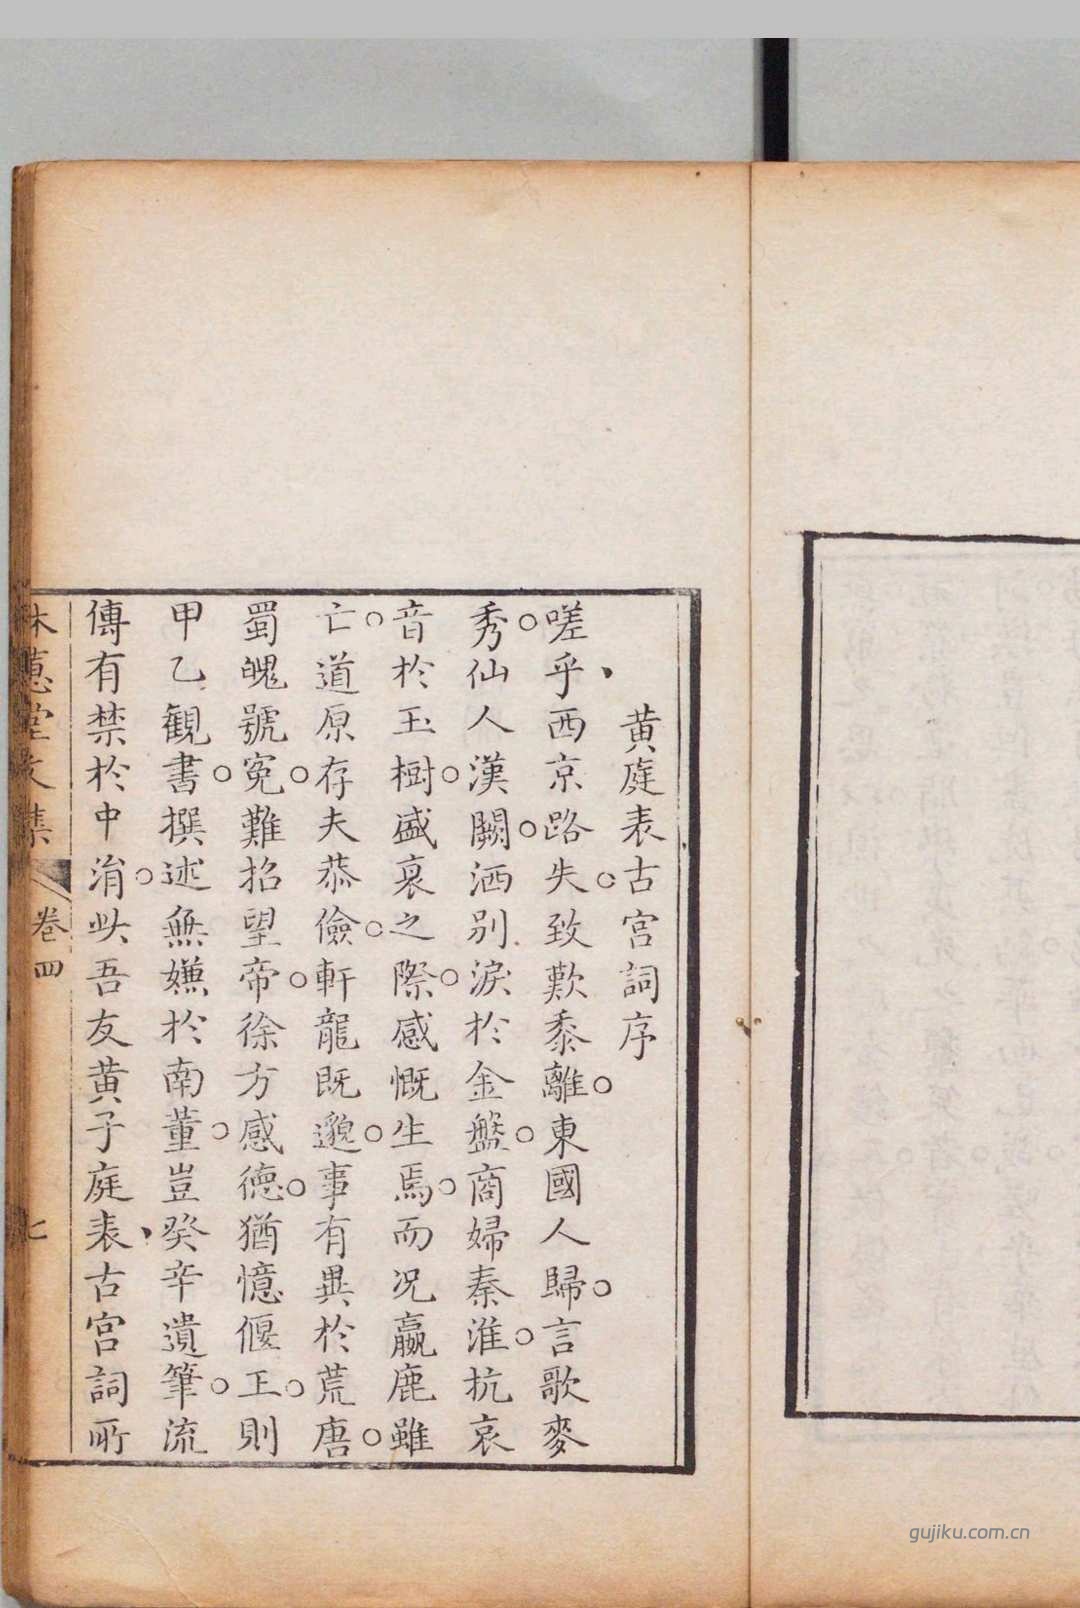 黄庭表古宮詞序
嗟乎西京路失致歎黍離東國人歸言歌麥
秀仙人漢闕洒別淚於金盤商婦秦淮抗哀
音於玉樹盛衰之際感慨生焉而况嬴鹿雖
亡道原存夫恭儉軒龍既邈事有異於荒唐
蜀魄號冤難招望帝徐方感德猶憶偃王則
甲乙觀書撰述無嫌於南董豈癸辛遺筆流
傳有禁於中涓此吾友黄子庭表古宮詞所
林蕙堂文集
卷四
七
gujiku.com.cn